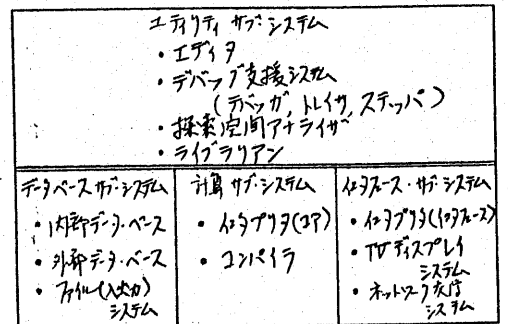 ユティリティ サブ・システム
・エディタ
・デバッグ支援システム
(デバッガ, トレイサ, ステッパ)
・探索空間アナライザ
・ライブラリアン
データベース サブ・システム
・内部データ・ベース
・外部データ・ベース
・ファイル(入出力)
システム
計算 サブ・システム
・インタプリタ(コア)
・コンパイラ
インタフェース・サブ・システム
・インタプリタ(インタフェース)
・TVディスプレイ
システム
・ネットワーク
システム